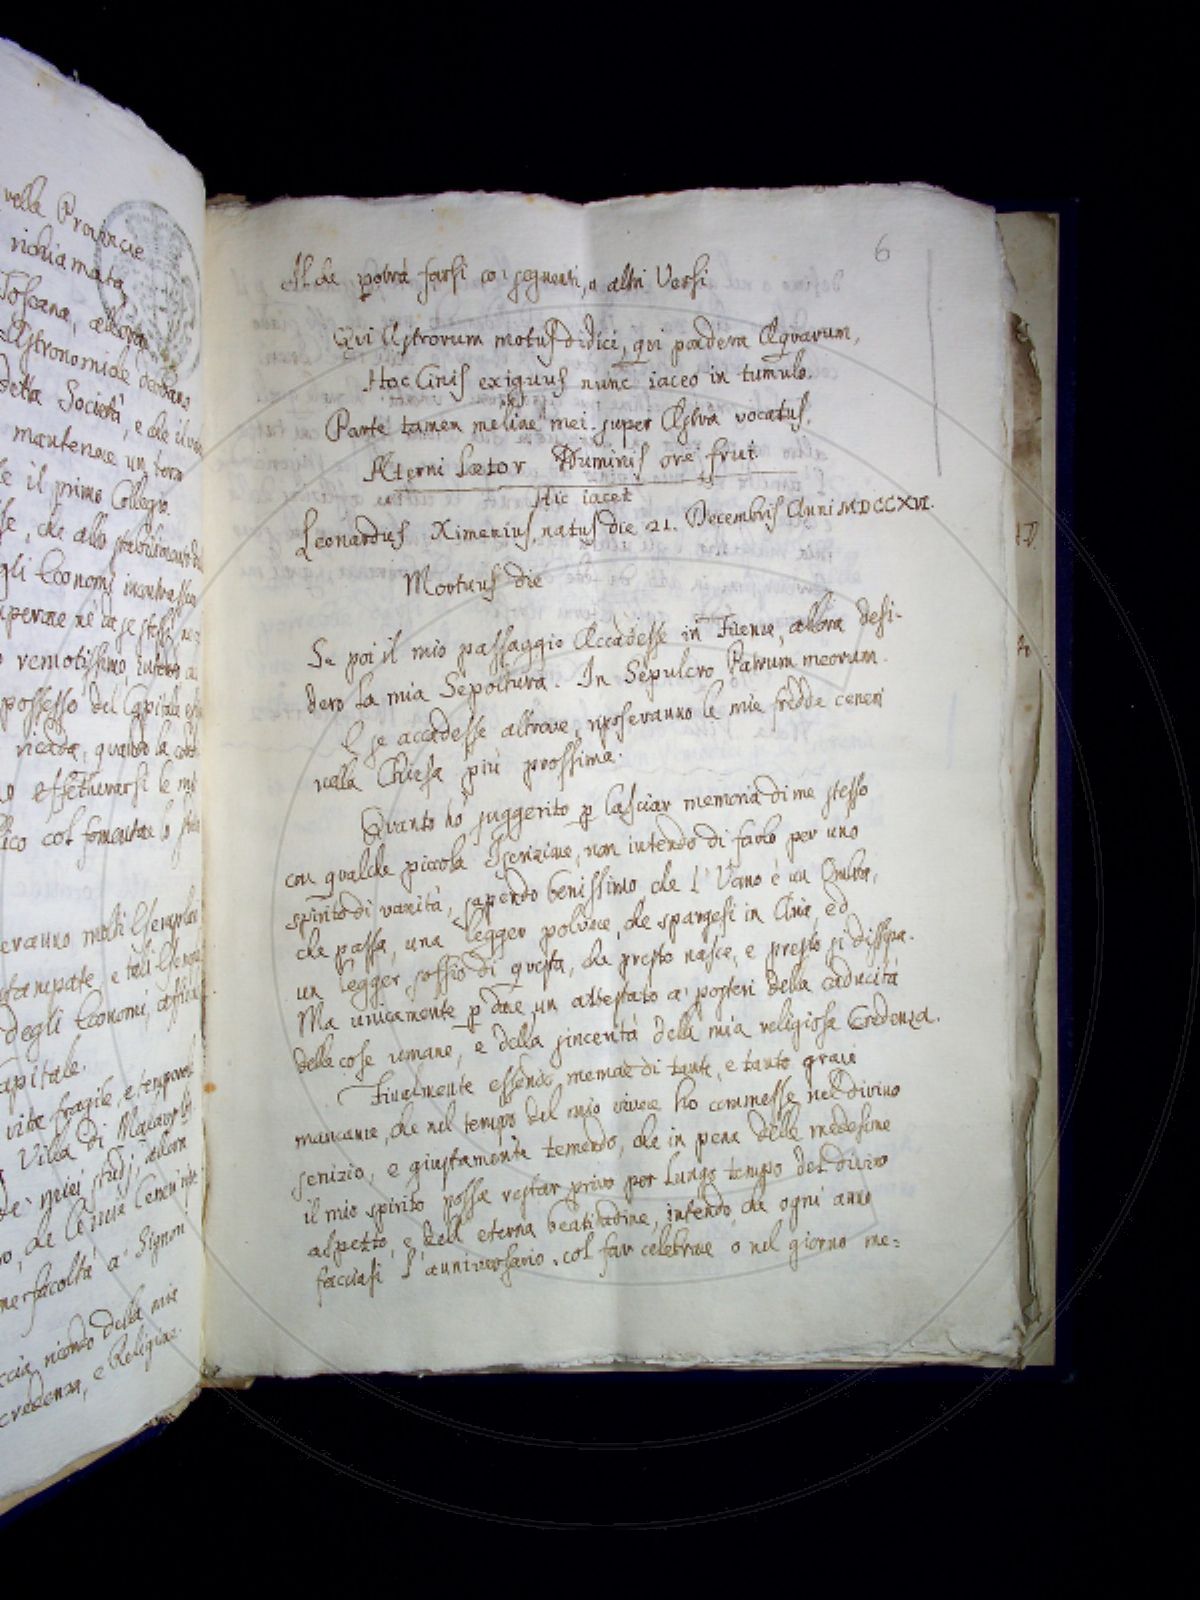 velle Provincie
richiamata,
Toscana,
Astronomiche debbano
detta Società, e che il
mantenere un
il primo Collegio.
che allo stabilimento
gli Economi
né da se stessi,
remotissimo,
possesso del Capitale
ricada, quando la
effettuarsi le mie
col fomentare lo
eranno molti Esemplari
stampate, e tali Esempl
degli Economi,
apitale.
vita fragile, e temporale
Villa di
de' miei studj,
che le mie Ceneri
facoltà a' Signori
ricordo della mia
credenza, e Religione.
6
Al che potrà farsi co' seguenti, o altri Versi
Qui Astrorum motus didici, qui pondera Aquarum,
Hoc Cinis exiguus nunc iaceo in tumulo.
Parte tamen meliore mei super Astra vocatus,
Æterni lætor Numinis ore frui.
Hic iacet
Leonardus Ximenius, natus die 21. Decembris Anni MDCCXVI.
Mortuus die
Se poi il mio passaggio Accadesse in Firenze, allora desi-
dero la mia Sepoltura. In Sepulcro Patrum meorum.
E se accadesse altrove, riposeranno le mie fredde ceneri
nella Chiesa più prossima.
Quanto hò suggerito p lasciar memoria di me stesso
con qualche piccola Iscrizione, non intendo di farlo per uno
spirito di vanità, sapendo benissimo che l' Uomo è un Ombra,
che passa, una legger polvere, che spargesi in Aria, ed
un legger soffio di questa, che presto nasce, e presto si dissipa.
Ma unicamente p dare un attestato a' posteri della caducità
delle cose umane, e della sincerità della mia religiosa Credenza.
Finalmente essendo memore di tante, e tanto gravi
mancanze, che nel tempo del mio vivere ho commesse nel divino
servizio, e giustamente temendo, che in pena delle medesime
il mio spirito possa restar privo per lungo tempo del divino
aspetto, e dell' eterna beatitudine, intendo che ogni anno
facciasi l' anniversario, col far celebrare o nel giorno me=